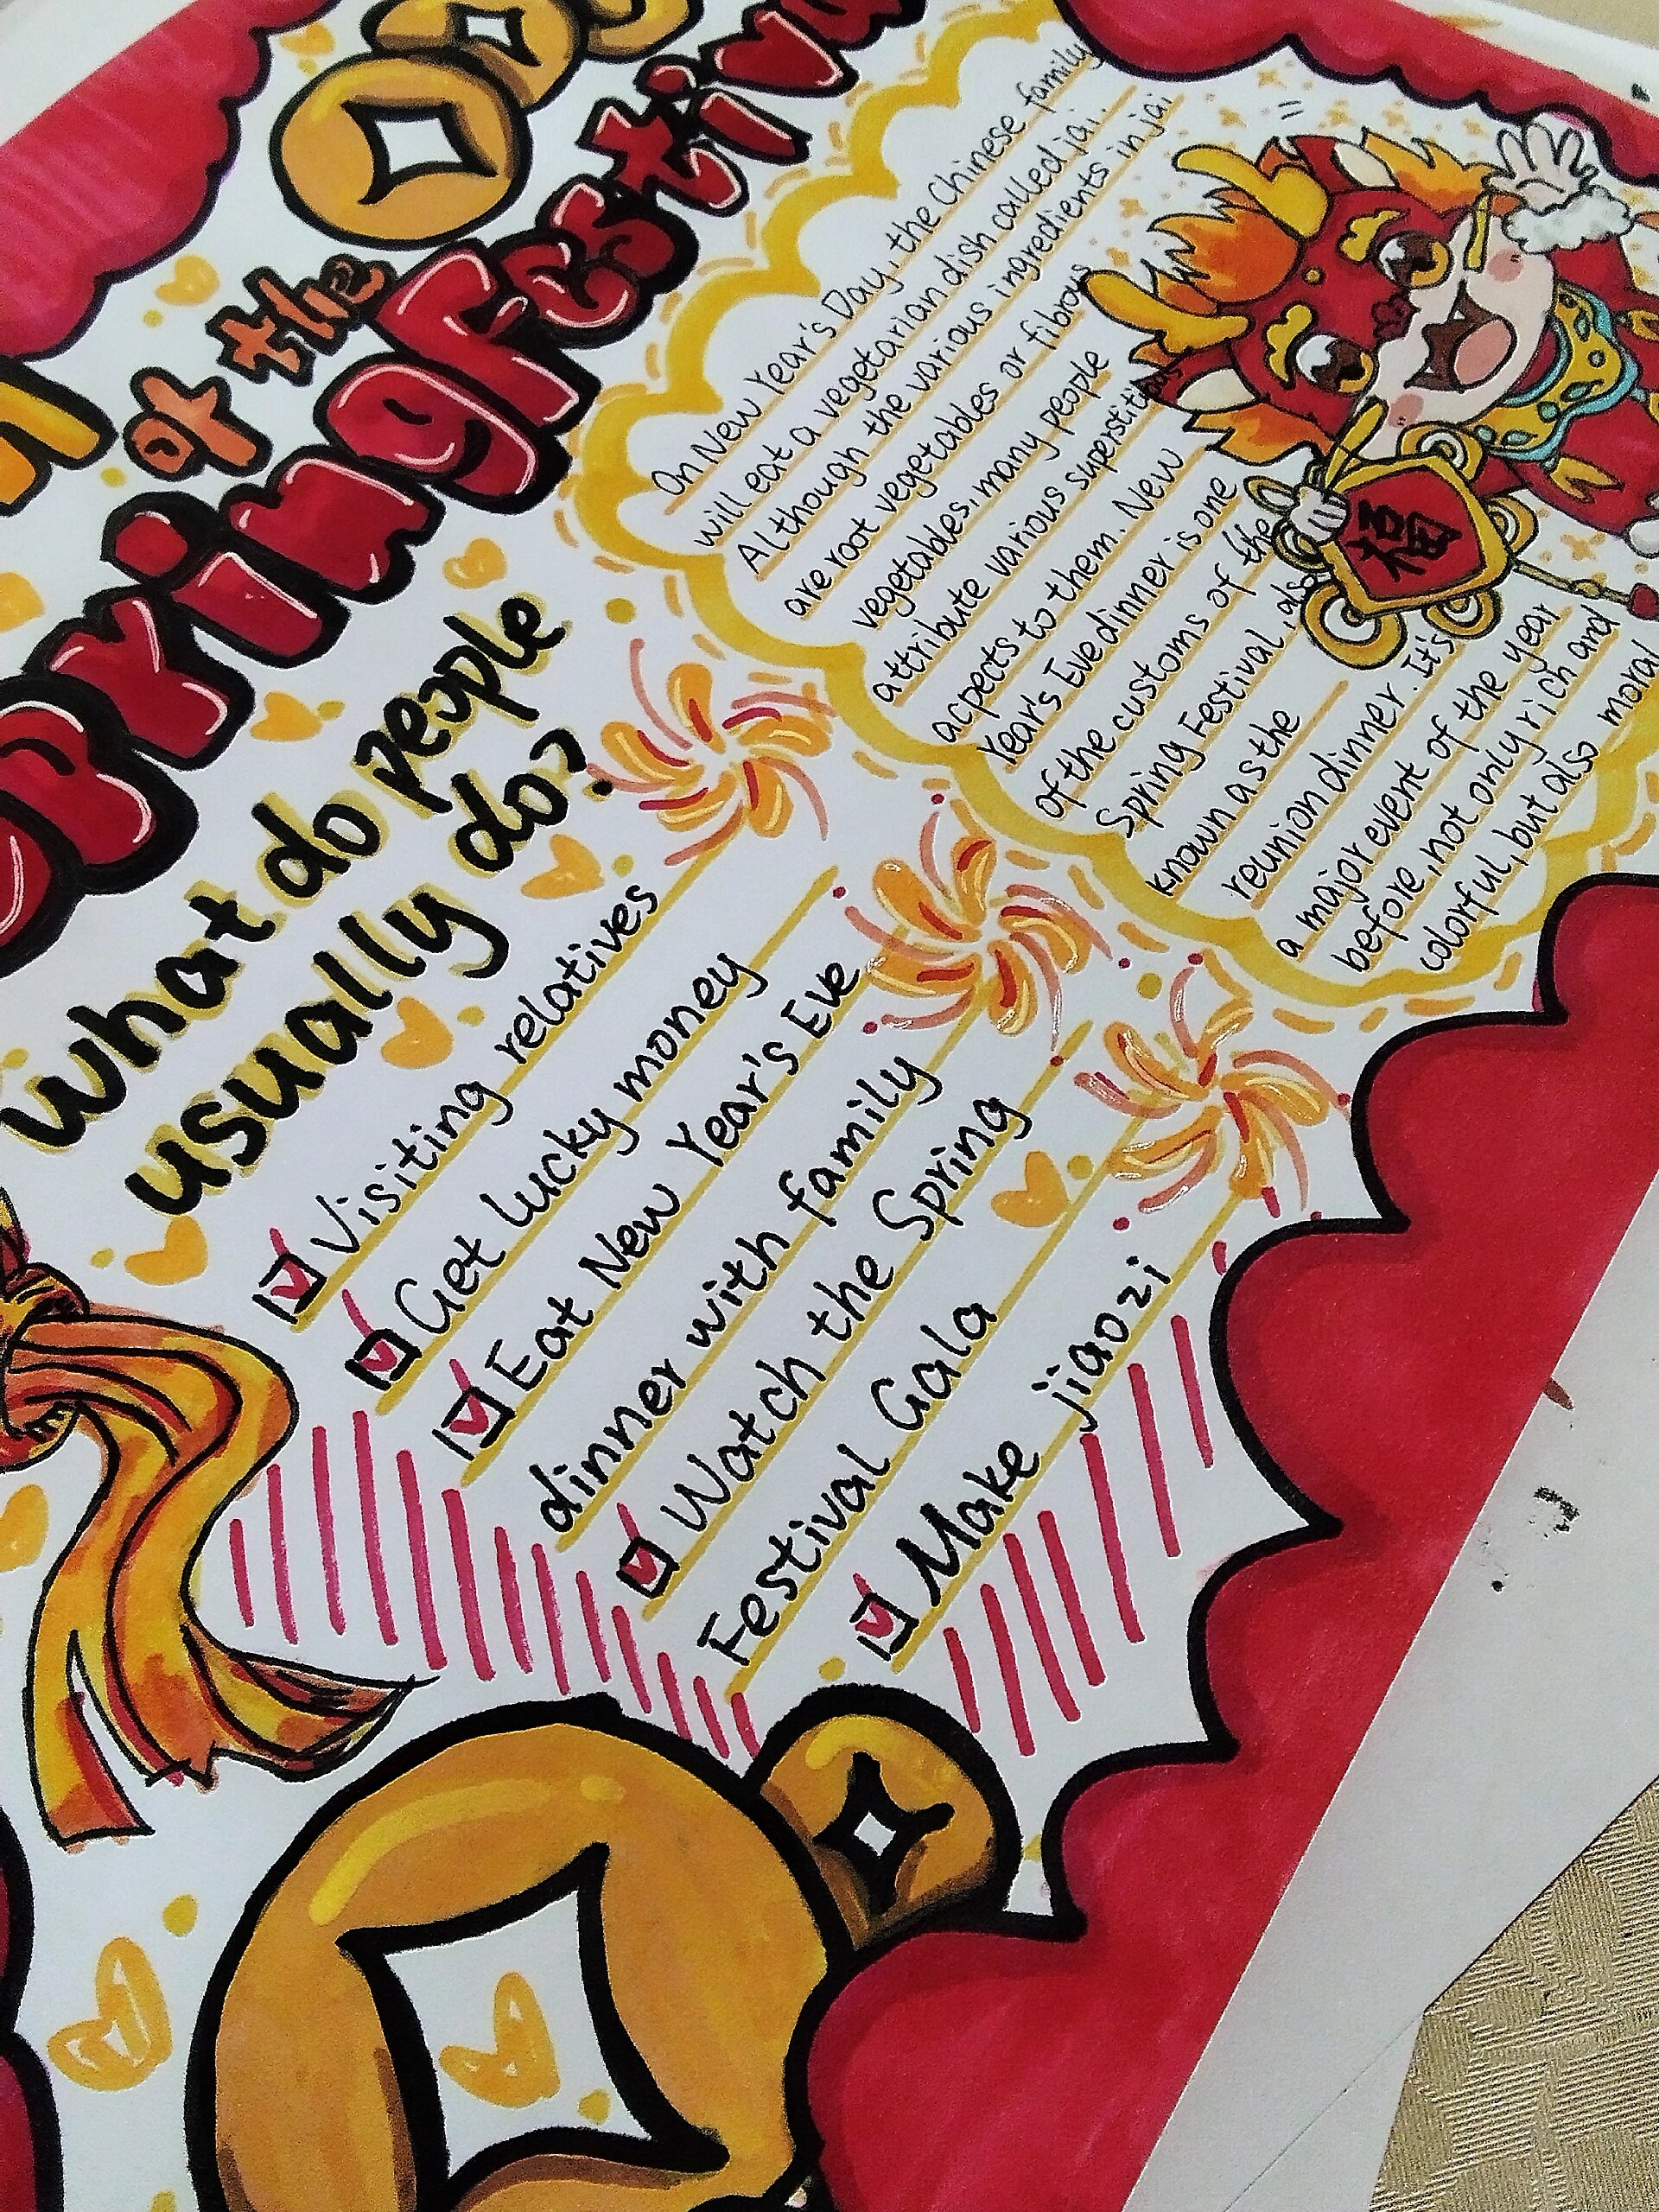 of the
Spring Festiv
What do people
usually do?
Visiting relatives
Get lucky money
Eat New Year's Eve
dinner with family
Watch the Spring
Festival Gala
Make jiaozi
On New Year's Day, the Chinese family
will eat a vegetarian dish called jai.
Although the various ingredients in jai
are root vegetables or fibrous
vegetables, many people
attribute various superstitious
acpects to them. New
Year's Eve dinner is one
of the customs of the
Spring Festival, also
known as the
reunion dinner. It's
a major event of the year
before, not only rich and
colorful, but also moral
福